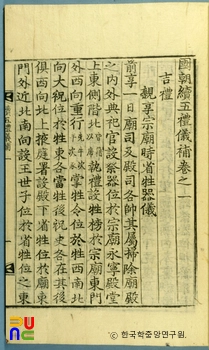 國朝續五禮儀補卷之一
吉禮
親享宗廟時省牲器儀
前享一日廟司及殿司各帥其屬掃除廟殿
之內外典祀官設祭器位於宗廟永寧殿堂
上東側階北
執禮設牲榜於宗廟東門
外西向
重行
掌牲令位於牲西南北
向大祝位於牲東各當牲後祝史各在其後
俱西向北上掖庭署設殿下省牲位於廟東
門外近北南向設王世子位於省牲位之東
한국학중앙연구원